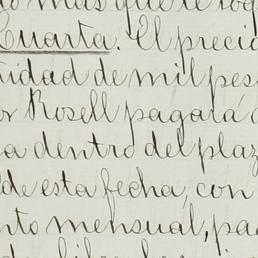 o más que le to
Cuarta. El precio
tidad de mil pes
or Rosell pagará a
a dentro del plaz
de esta fecha, con
nto mensual, pa